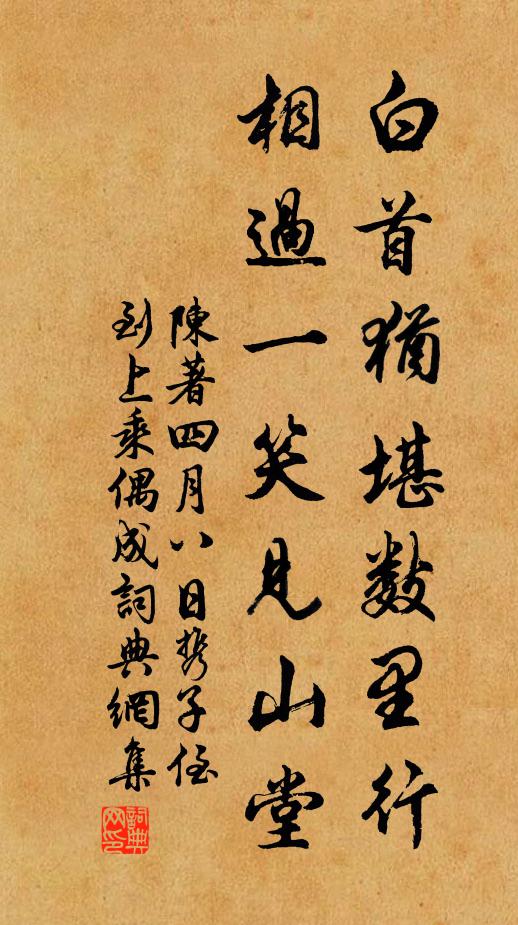 白首猶堪數里行
相過一笑見山堂
陳著四月八日携子侄
到上乘偶成詞典網集
詞典网印